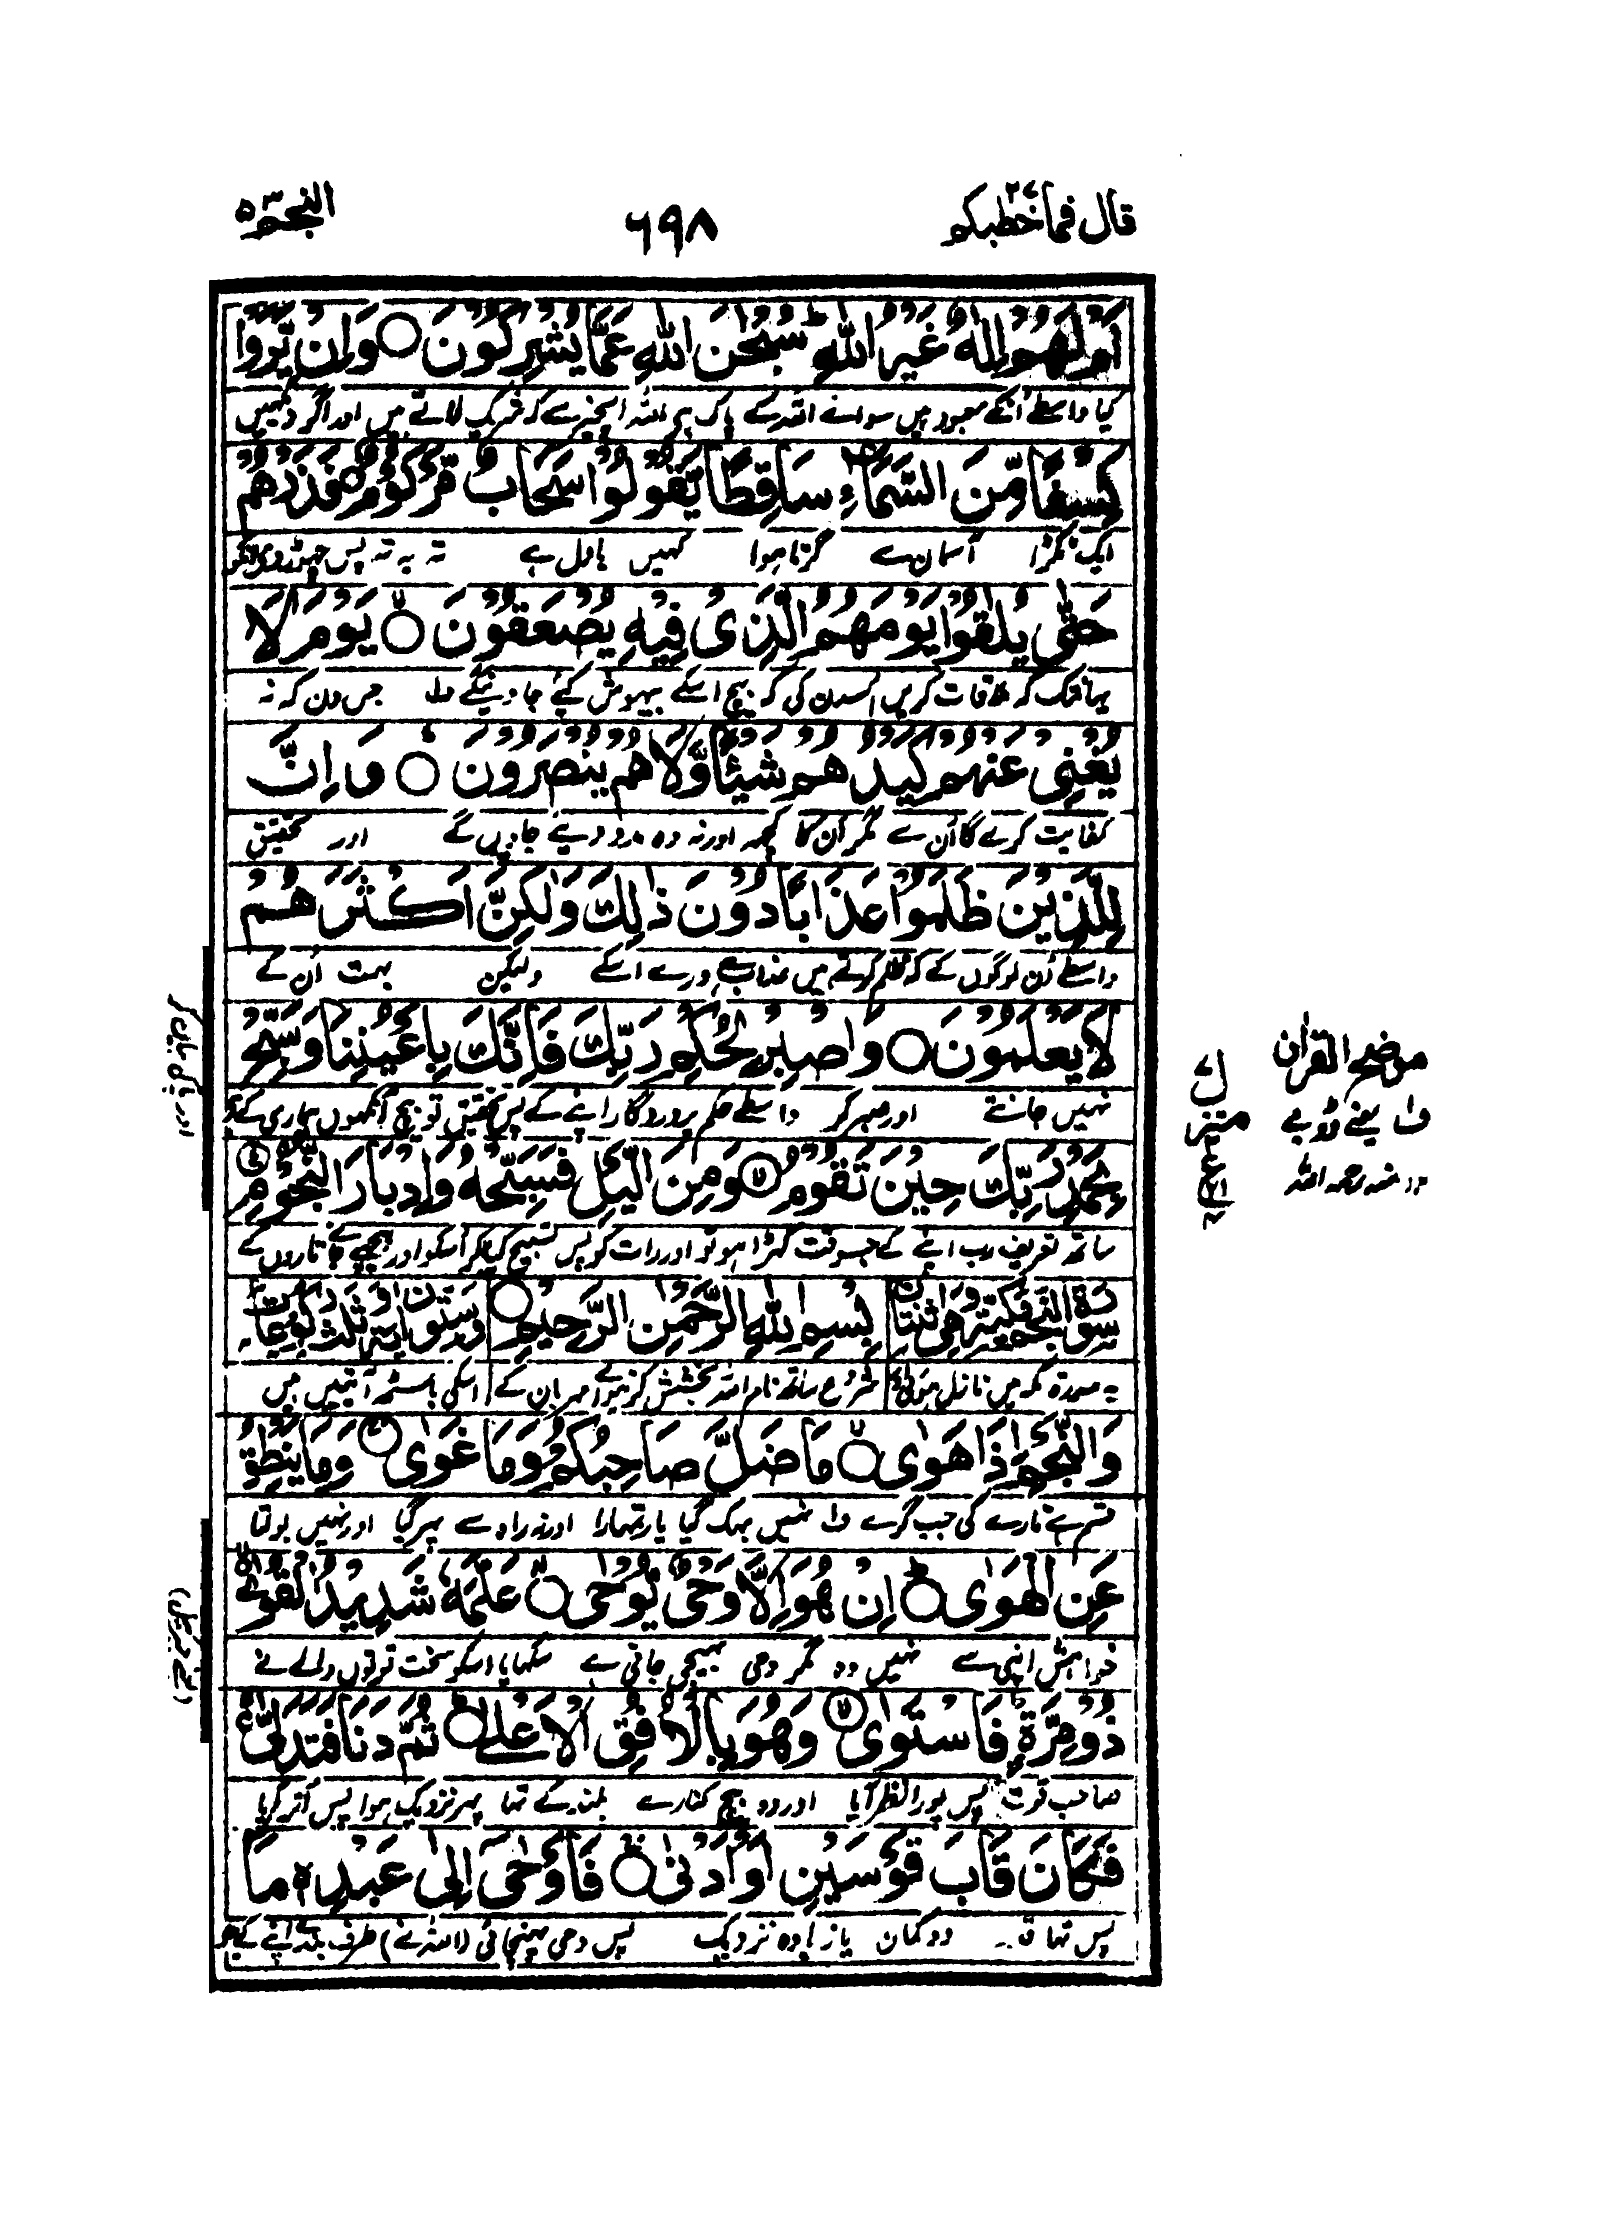 قال فما خطبکم ۲۷
۶۹۸
النجم ۵۳
اَمْ لَهُمْ اِلٰهٌ غَيْرُ اللّٰهِ ؕ سُبْحٰنَ اللّٰهِ عَمَّا يُشْرِكُوْنَ ○ وَاِنْ يَّرَوْا
کیا واسطے اُنکے معبود ہیں سوائے اللہ کے پاک ہے اللہ اسچیز سے کہ شریک لاتے ہیں اور اگر دیکھیں
كِسْفًا مِّنَ السَّمَآءِ سَاقِطًا يَّقُوْلُوْا سَحَابٌ مَّرْكُوْمٌ ○ فَذَرْهُمْ
ایک ٹکڑا آسمان سے گرتا ہوا کہیں بادل ہے تہ بہ تہ پس چھوڑ دے انکو
حَتّٰى يُلٰقُوْا يَوْمَهُمُ الَّذِيْ فِيْهِ يُصْعَقُوْنَ ○ يَوْمَ لَا
یہانتک کہ ملاقات کریں اُسدن کی کہ بیچ اسکے بیہوش کئے جاوینگے ف جس دن کہ نہ
يُغْنِيْ عَنْهُمْ كَيْدُهُمْ شَيْـًٔا وَّلَا هُمْ يُنْصَرُوْنَ ○ وَ اِنَّ
کفایت کرے گا اُن سے مکر اُن کا کچھ اور نہ وہ مدد دیے جاویں گے اور تحقیق
لِلَّذِيْنَ ظَلَمُوْا عَذَابًا دُوْنَ ذٰلِكَ وَلٰكِنَّ اَكْثَرَهُمْ
واسطے اُن لوگوں کے کہ ظلم کرتے ہیں عذاب ہے ورے اسکے ولیکن بہت اُن کے
لَا يَعْلَمُوْنَ ○ وَاصْبِرْ لِحُكْمِ رَبِّكَ فَاِنَّكَ بِاَعْيُنِنَا وَسَبِّحْ
نہیں جانتے اور صبر کر واسطے حکم پروردگار اپنے کے پس تحقیق تو بیچ آنکھوں ہماری کے ہے
بِحَمْدِ رَبِّكَ حِيْنَ تَقُوْمُ ○ وَمِنَ الَّيْلِ فَسَبِّحْهُ وَاِدْبَارَ النُّجُوْمِ
ساتھ تعریف رب اپنے کے جسوقت کھڑا ہو تو اور رات کو پس تسبیح کر اُسکو اور پیچھے جانے تاروں کے
بِسْمِ اللّٰهِ الرَّحْمٰنِ الرَّحِيْمِ ○
یہ سورۃ مکہ میں نازل ہوئی شروع ساتھ نام اللہ بخشش کرنیوالے مہربان کے اسکی باسٹھ آیتیں ہیں
وَالنَّجْمِ اِذَا هَوٰى ○ مَا ضَلَّ صَاحِبُكُمْ وَمَا غَوٰى ○ وَمَا يَنْطِقُ
قسم ہے تارے کی جب گرے ف نہیں بہک گیا یار تمہارا اور نہ راہ سے پھر گیا اور نہیں بولتا
عَنِ الْهَوٰى ○ اِنْ هُوَ اِلَّا وَحْيٌ يُّوْحٰى ○ عَلَّمَهٗ شَدِيْدُ الْقُوٰى
خواہش اپنی سے نہیں وہ مگر وحی بھیجی جاتی ہے سکھایا اسکو سخت قوتوں والے نے
ذُوْ مِرَّةٍ فَاسْتَوٰى ○ وَهُوَ بِالْاُفُقِ الْاَعْلٰى ○ ثُمَّ دَنَا فَتَدَلّٰى
صاحب قوت پس پورا نظر آیا اور وہ بیچ کنارے بلند کے تھا پھر نزدیک ہوا پس اُتر آیا
فَكَانَ قَابَ قَوْسَيْنِ اَوْ اَدْنٰى ○ فَاَوْحٰى اِلٰى عَبْدِهٖ مَا
پس تھا قدر دو کمان یا زیادہ نزدیک پس وحی پہنچائی (اللہ نے) طرف بندے اپنے کے جو
منزل
موضح القرآن
ف یعنے ڈوبے
۱۲ منہ رحمہ اللہ